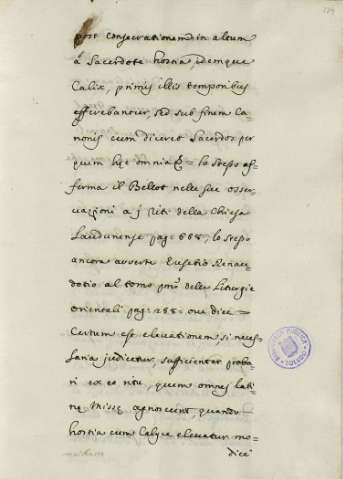 post consecrationem in altum
à Sacerdote hostia, idemque
Calix, primis illis temporibus
efferebantur, sed sub finem Ca=
nonis cum diceret Sacerdos per
quem hęc omnia &= lo stesso af=
ferma il Bellot nelle sue osser=
uazzioni a i Riti della Chiesa
Laudunense pag: 668, lo stesso
ancora auuerte Eusebio Renau=
dotio al tomo pmo delle Liturgie
orientali pag: 288= oue dice=
Certum est eleuationem, si neces=
saria judicetur, sufficienter proba=
ri ex eo ritu, quem omnes lati=
nę Missę agnoscunt, quando
hostia cum Calyce eleuatur mo=
dice